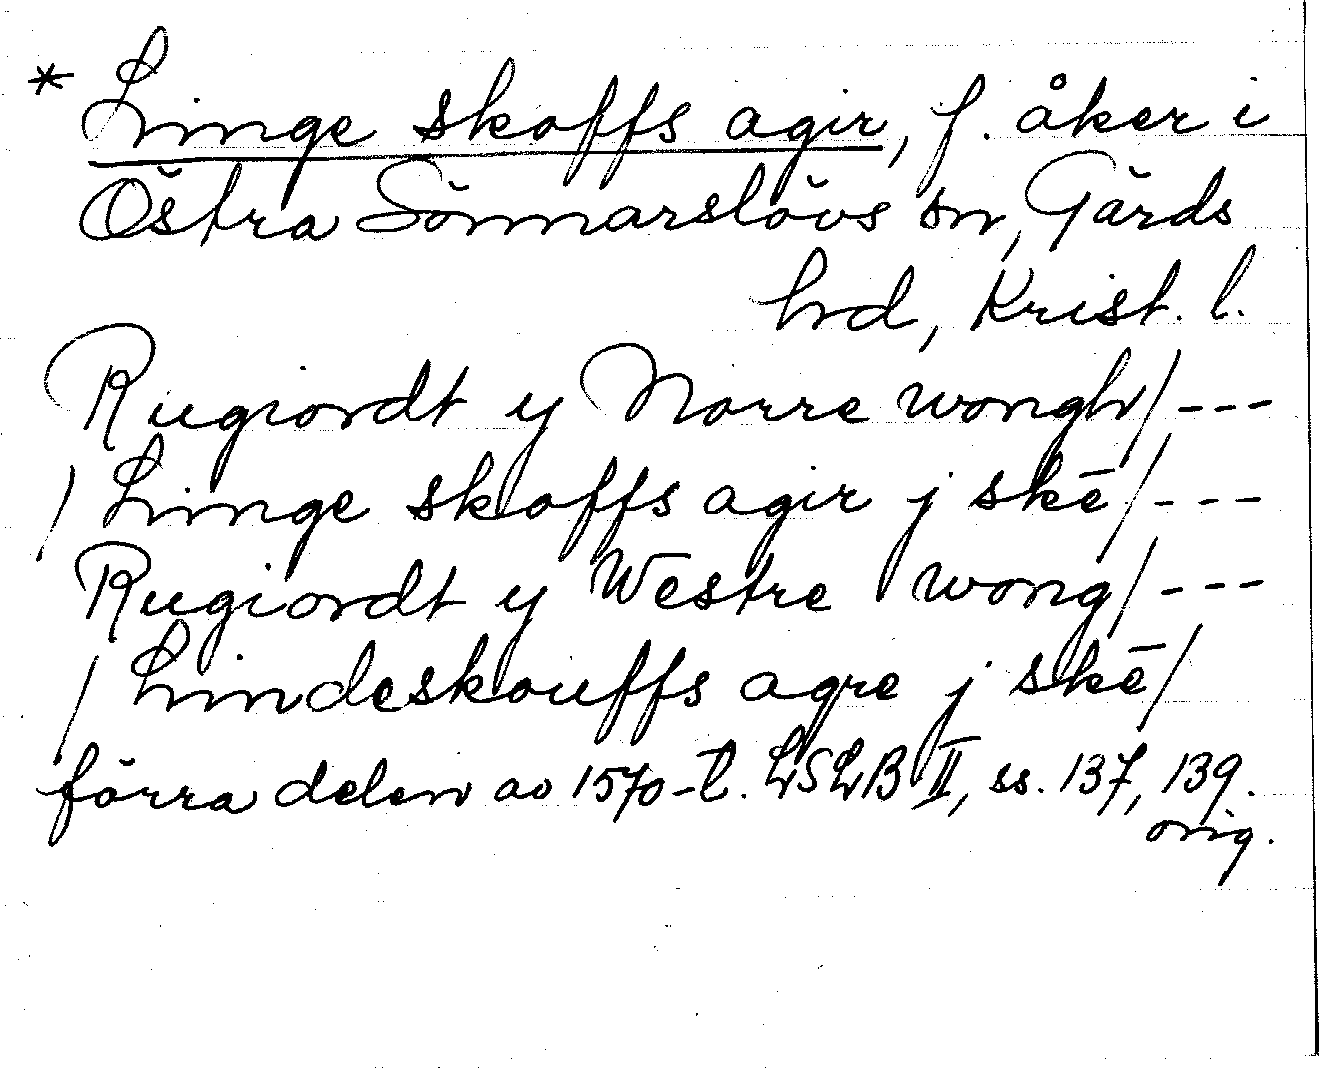 * Linge skoffs agir, f. åker i
Östra Sönnarslövs sn, Gärds
hd, Krist. l.
Rugiordt y Norre wongh/ ---
/ Linge skoffs agir j skē/ ---
Rugiordt y Westre wong/ ---
/ Lindeskouffs agre j skē/
förra delen av 1570-t. LSLB II, ss. 137, 139.
orig.